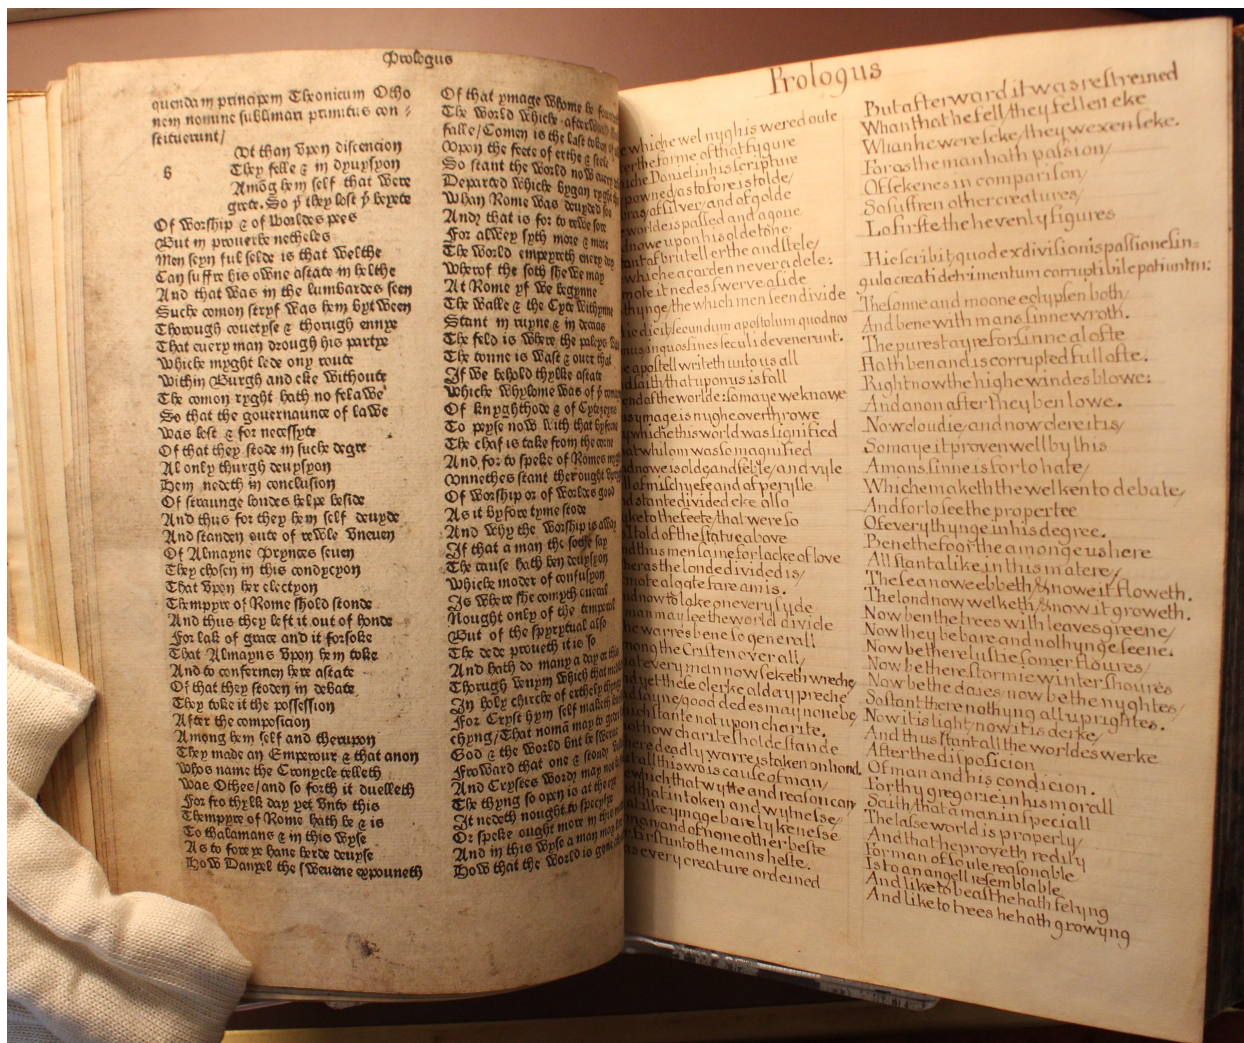 Prologus
quendam principem Theonicum Otho
nem nomine sublimari primitus con⸗
stituerunt/
6
Ot than vpon discencion
They felle ⁊ in dyuysyon
Amōg hem self that were
grete. So þͭ they lost þͤ beyete
Of worship ⁊ of worldes pees
But in prouerbe netheles
Men seyn ful selde is that welthe
Can suffre his owne astate in helthe
And that was in the lumbardes seen
Suche comon stryf was hem bytween
Thorough couetyse ⁊ thorugh enuye
That euery man drough his partye
Whiche myght lede ony route
Within Burgh and eke withoute
The comon ryght hath no felawe
So that the gouernaunce of lawe
Was lost ⁊ for necessyte
Of that they stode in suche degre
Al only thurgh deuysyon
Hem nedeth in conclusion
Of straunge londes helpe beside
And thus for they hem self deuyde
And standen oute of rewle vneuen
Of Almayne Prynces seuen
They chosen in this condycyon
That vpon her electyon
Thempyre of Rome shold stonde
And thus they left it out of honde
For lak of grace and it forsoke
That Almayns vpon hem toke
And to confermen here astate
Of that they stoden in debate
They toke it the possession
After the composicion
Among hem self and therupon
They made an Emperour ⁊ that anon
Whos name the Cronycle telleth
Was Othes/and so forth it duelleth
For fro thylk day yet vnto this
Thempyre of Rome hath be ⁊ is
To thalamans ⁊ in this wyse
As to fore ye haue herde deuyse
How Danyel the sweuene expouneth
Of that ymage whome he
The world whiche after
Falle/Comen is the last token
Vpon the feete of erthe ⁊ stele
So stant the world now euery
Departed whiche bygan ryght
Whan Rome was deuyded
And that is for to rewe sore
For alwey syth more ⁊ more
The world empeyreth euery day
Wherof the soth shewe may
At Rome yf we begynne
The walle ⁊ the Cyte withynne
Stant in ruyne ⁊ in decas
The feld is where the paleys
The tonne is wast ⁊ ouer that
If we behold thylke astate
Whiche whylome was of
Of knyghthode ⁊ of Cytezeyns
To peyse now with that byforn
The chaf is take from the corne
And for to speke of Romes
Onnethes stant ther ought
Of worship or of worldes good
As it byfore tyme stode
And why the worship is away
If that a man the sothe say
The cause hath ben deuysyon
Whiche moder of confusyon
Is where she cometh oueral
Nought only of the temporal
But of the spyrytual also
The dede proueth it is so
And hath do many a day or this
Thorugh venym which that
In holy chirche of erthely thyng
For Cryst hym self maketh
thyng/That nomā may to
God ⁊ the world but he
Froward that one ⁊ stondy
And Crystes word may not
The thyng so open is at the
It nedeth nought to specyfye
Or speke ought more in this
And in this wyse a man may
How that the world is gone
Prologus
whiche wel nygh is wered oute
the forme of that fygure
Daniel in his scripture
as tofore is tolde/
of silver/and of golde
worlde is passed and agone
nowe upon his olde tone
of brutell erthe and stele/
whiche acorden never a dele:
mote it nedes swerve aside
thynge/the which men seen divide
dicit secundum apostolum quod nos
in quos fines seculi devenerunt.
apostell writeth unto us all
saith/that upon us is fall
of the worlde: so maye we knowe
ymage is nyghe overthrowe
whiche this world was signified
whilom was so magnified
nowe is olde and feble/and vyle
of mischyefe and of perylle
stante divided eke also
to the feete/that were so
told of the statue above
thus men/ sawe for lacke of love
as the londe divided is/
mote algate fare amis.
now to loke on every syde
man may see the world divide
warres ben so generall
the Cristen over all/
every men now seketh wreche
yet these clerke alday preche
sayne/good dedes may none be
stante not upon charite.
not how charite sholde stande
deadly warre is taken on hond.
all this wo is cause of man/
which that wytte and reason can
that in token and wytnesse/
ilke ymage bare lykenesse
man/and of none other beste
first unto the mans heste.
every creature ordeined
But afterward it was restreined
Whan that he fell/they fellen eke
Whan he were seke/they wexen seke.
For as the man hath passion/
Of sekenes in comparison/
So suffren other creatures/
Lo firste the hevenly figures
Hic scribit, quod ex divisionis passione sin=
gula creati detrimentum corruptibile patiuntur:
The sonne and moone eclypsen both/
And bene with mans sinne wroth.
The purest ayre for sinne alofte
Hath ben and is corrupted full ofte.
Right now the highe windes blowe:
And anon after they ben lowe.
Now cloudie/and now clere it is/
So maye it proven well by this
A mans sinne is for to hate/
Whiche maketh the welken to debate/
And for to see the propertee
Of every thynge in his degree.
Benethe foorthe amonge us here
All stant alike in this matere/
The sea nowe ebbeth/& nowe it floweth.
The lond now welketh/& now it groweth.
Now ben the trees with leaves greene/
Now they be bare and nothynge seene.
Now be there lustie somer floures/
Now be there stormie winter shoures
Now be the daies now be the nyghtes/
So stant there nothyng all uprightes.
Now it is light/now it is derke/
And thus stant all the worldes werke
After the disposicion
Of man and his condicion.
Forthy gregorie in his morall
Saith/that a man in speciall
The lasse world is properly/
And that he proveth redily
For man of soule reasonable
Is to an angell resemblable
And like to beast he hath felyng
And like to trees he hath growyng